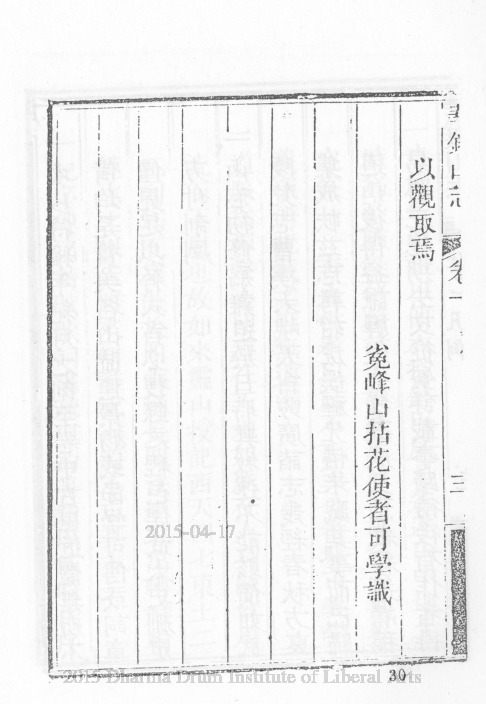 以觀取焉
峰山拈花使者可學識
山志
卷一
三
30
2015-04-17
2015 Dharma Drum Institute of Liberal Arts